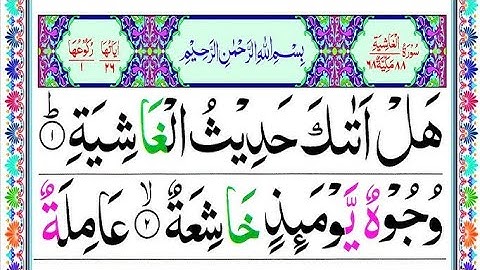 سُورَةُ الْغَاشِيَةِ مَكِّيَّةٌ ٨٨ ٦٨
بِسْمِ اللّٰهِ الرَّحْمٰنِ الرَّحِيْمِ
اٰيَاتُهَا ٢٦ رُكُوْعُهَا ١
هَلْ اَتٰىكَ حَدِيْثُ الْغَاشِيَةِ ؕ ١
وُجُوْهٌ يَّوْمَئِذٍ خَاشِعَةٌ ۙ ٢ عَامِلَةٌ